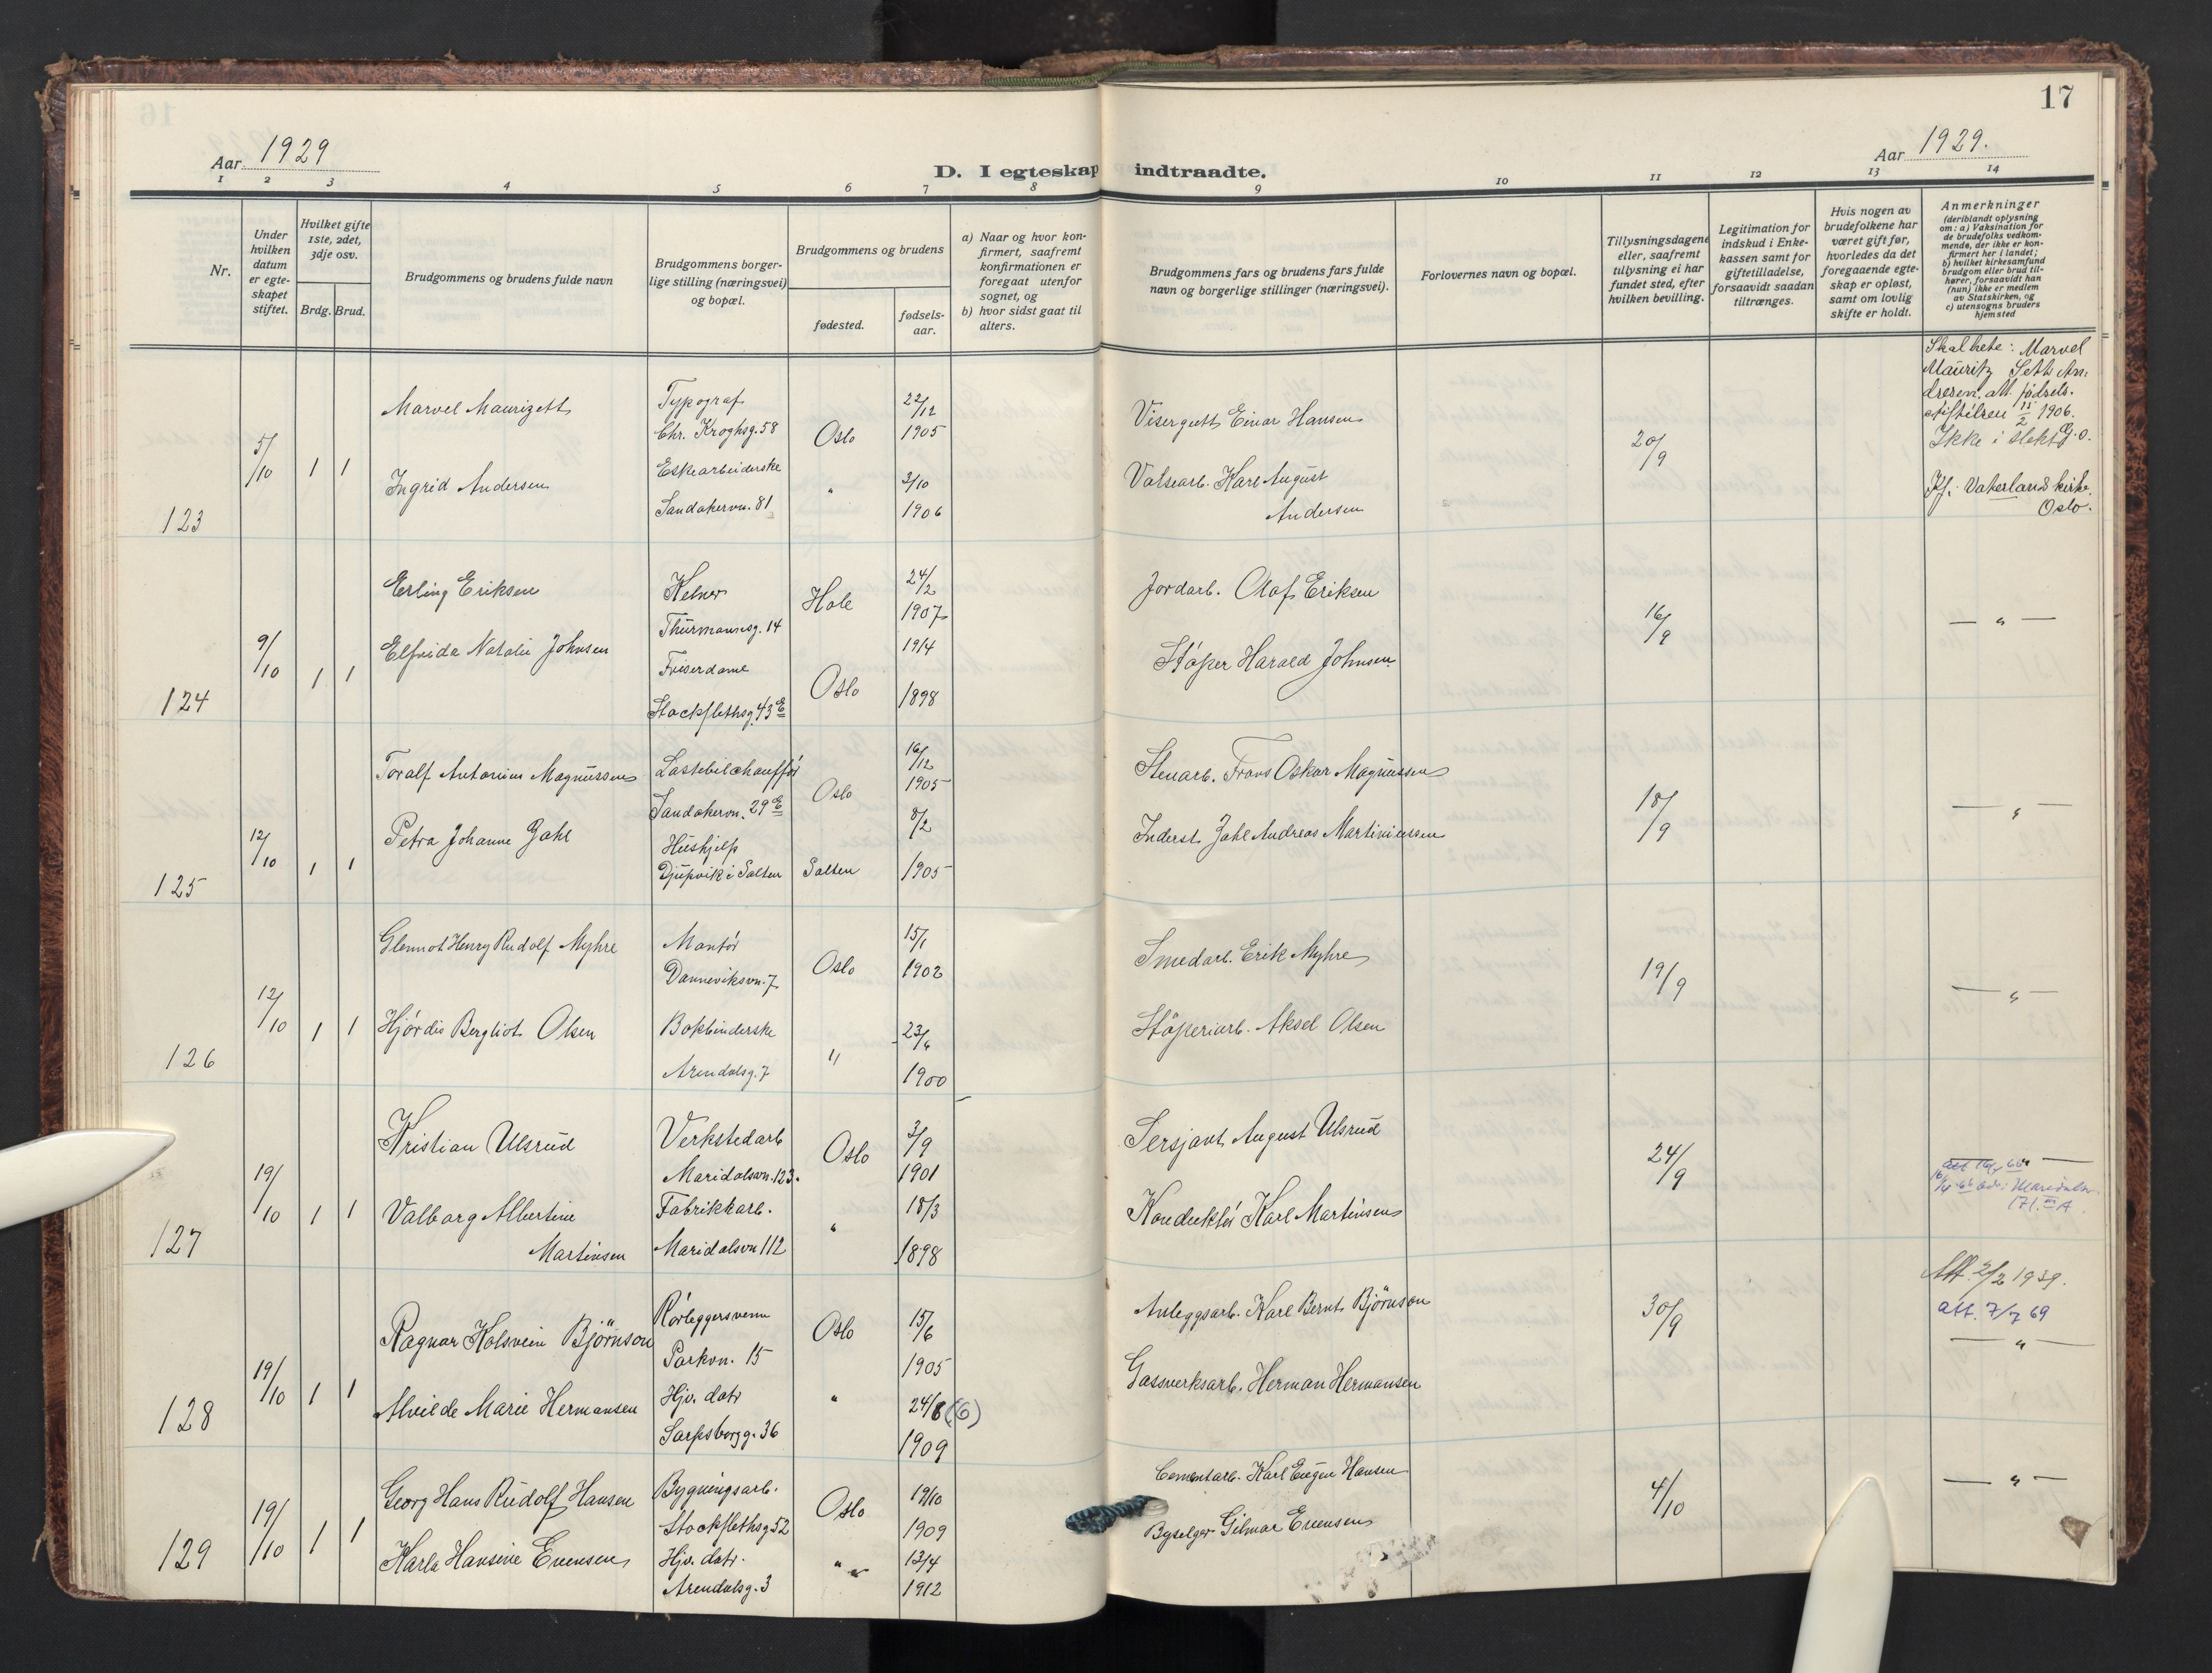 17
Aar 1929
Aar 1929.
D. I egteskap indtraadte.
1 2 3 4 5 6 7 8 9 10 11 12 13 14
Nr.
Under hvilken datum er egteskapet stiftet.
Hvilket gifte 1ste, 2det, 3dje osv.
Brdg. Brud.
Brudgommens og brudens fulde navn
Brudgommens borgerlige stilling (næringsvei) og bopæl.
Brudgommens og brudens
fødested.
fødselsaar.
a) Naar og hvor konfirmert, saafremt konfirmationen er foregaat utenfor sognet, og
b) hvor sidst gaat til alters.
Brudgommens fars og brudens fars fulde navn og borgerlige stillinger (næringsvei).
Forlovernes navn og bopæl.
Tillysningsdagene eller, saafremt tillysning ei har fundet sted, efter hvilken bevilling.
Legitimation for indskud i Enkekassen samt for giftetilladelse, forsaavidt saadan tiltrænges.
Hvis nogen av brudefolkene har været gift før, hvorledes da det foregaaende egteskap er opløst, samt om lovlig skifte er holdt.
Anmerkninger
(deriblandt oplysning om: a) Vaksination for de brudefolks vedkommende, der ikke er konfirmert her i landet; b) hvilket kirkesamfund brudgom eller brud tilhører, forsaavidt han (hun) ikke er medlem av Statskirken, og c) utensogns bruders hjemsted
123
5/10 1 1
Marvel Maurizett
Typograf
Chr. Kroghsg. 58
Oslo
22/12
1905
Visergutt Einar Hansen
20/9
Skal hete: Marvel
Mauritz Seth An-
dresen. att. fødsels-
1906.
Ikke i slekt
Ingrid Andersen
Eskearbeiderske
Sandakervn. 81
"
2/10
1906
Valsearb. Karl August
Andersen
Kf. Vaterland kirke.
Oslo.
124
9/10 1 1
Erling Eriksen
Kelner
Thurmannsg. 14
Hole
24/2
1907
Jordarb. Olaf Eriksen
16/9
— " —
Elfrida Natalie Johnsen
Friserdame
Stockflethsg. 43 E
Oslo
19/4
1898
Støper Harald Johnsen
125
12/10 1 1
Toralf Antonius Magnussen
Lastebilchauffør
Sandakervn. 29 E
Oslo
16/12
1905
Stenarb. Frans Oskar Magnussen
18/9
— " —
Petra Johanne Jahl
Hushjelp
Djupvik i Salten
Salten
8/2
1905
Inderst Jahl Andreas Martiniussen
126
12/10 1 1
Glennot Henry Rudolf Myhre
Montør
Danneviksvn. 7
Oslo
15/1
1902
Smedarb. Erik Myhre
19/9
— " —
Hjørdis Bergliot Olsen
Bokbinderske
Arendalsg. 7
"
23/6
1900
Støperiarb. Aksel Olsen
127
19/10 1 1
Kristian Ulsrud
Verkstedarb
Maridalsvn. 123.
Oslo
3/9
1901
Sersjant August Ulsrud
24/9
Valborg Albertine
Martinsen
Fabrikkarb.
Maridalsvn 112
"
18/3
1898
Konduktør Karl Martinsen
171. III A.
128
19/10 1 1
Ragnar Kolsvein Björnson
Rørleggersvenn
Parkvn. 15
Oslo
15/6
1905
Anleggsarb. Karl Bernt Björnson
30/9
Att. 2/2 1939.
att. 7/7 69
— " —
Alvilde Marie Hermansen
Hjv. datr
Sarpsborgg. 36
"
24/8 (6)
1909
Gassverksarb. Herman Hermansen
129
19/10 1 1
Georg Hans Rudolf Hansen
Bygningsarb.
Stockflethsg 52
Oslo
19/10
1909
Cementarb. Karl Eugen Hansen
4/10
— " —
Karla Hansine Evensen
Hjv. datr.
Arendalsg. 3
"
13/4
1912
Byselger Gilmar Evensen